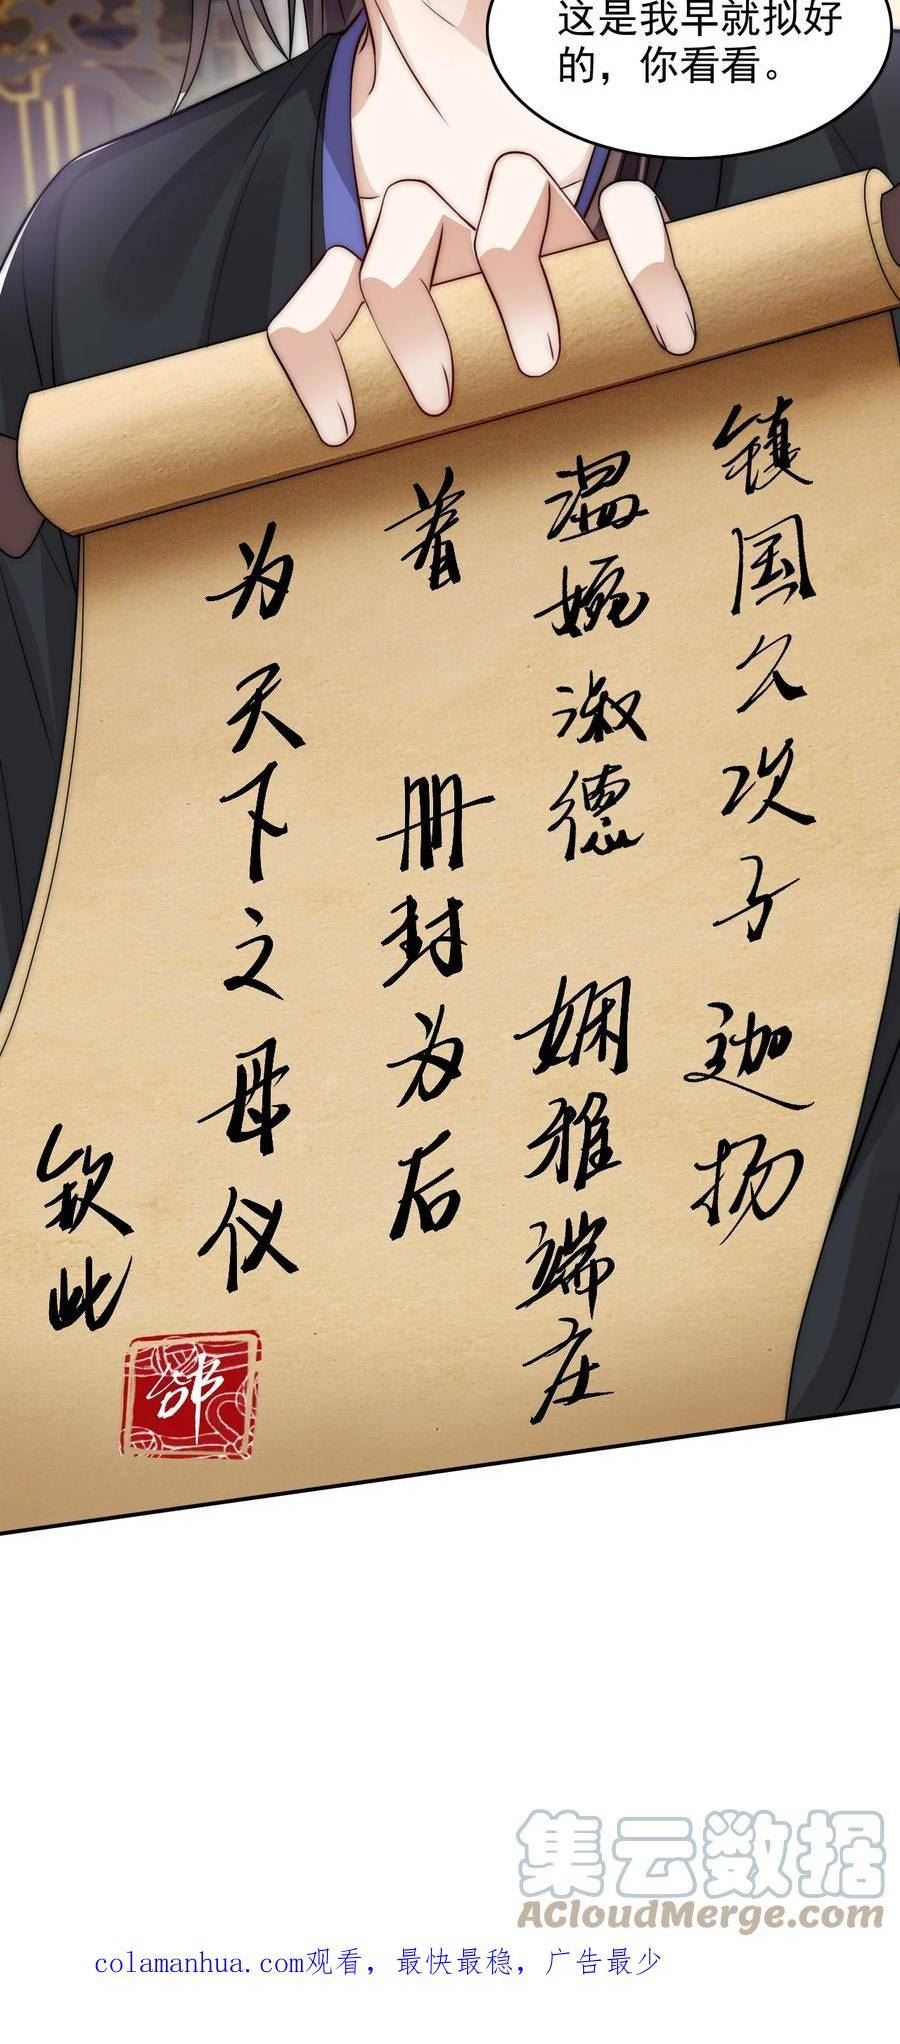 这是我早就拟好
的，你看看。
镇国久次子迦扬
温婉淑德 娴雅端庄
着 册封为后
为天下之母仪
钦此
集云数据
ACloudMerge.com
colamanhua.com观看，最快最稳，广告最少